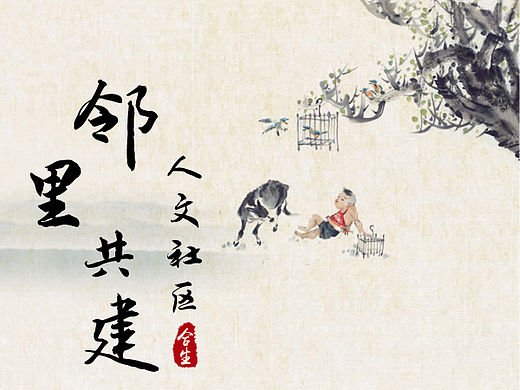 邻里共建
人文社区
合生